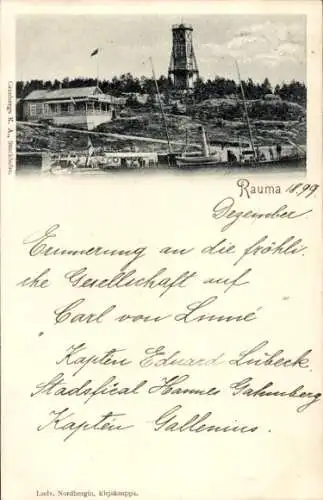 Centbergs K. A., Stockholm.
Rauma 18.99.
Dezember
Erinnerung an die fröhli-
che Gesellschaft auf
"Carl von Linné"
Kapten Eduard Lübeck.
Stadsfiscal Hannes Gahmberg
Kapten Gallenius.
Ludv. Nordbergin, kirjakauppa.